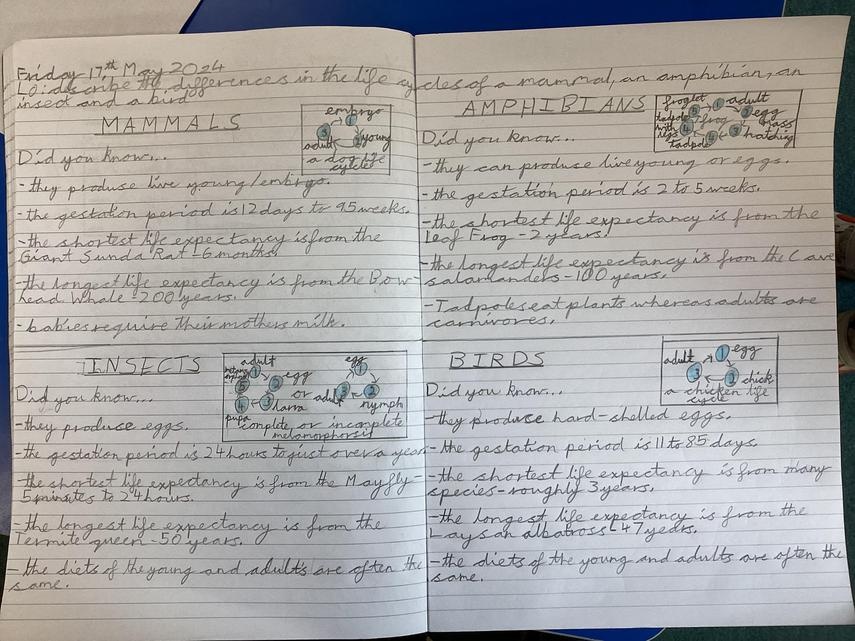 Friday 17th May 2024
LO: describe the differences in the life cycles of a mammal, an amphibian, an
insect and a bird
MAMMALS
embryo
1
2 young
3
adult
a dog life
cycle
Did you know...
- they produce live young/embryo.
- the gestation period is 12 days to 95 weeks.
- the shortest life expectancy is from the
Giant Sunda Rat - 6 months.
- the longest life expectancy is from the Bow-
head Whale - 200 years.
- babies require their mothers milk.
AMPHIBIANS
froglet
adult
1
egg
mass
2
hatching
3
tadpole
4
tadpole
with
legs
5
frog
Did you know...
- they can produce live young or eggs.
- the gestation period is 2 to 5 weeks.
- the shortest life expectancy is from the
Leaf Frog - 2 years.
- the longest life expectancy is from the Cave
salamanders - 100 years.
- Tadpoles eat plants whereas adults are
carnivores.
INSECTS
adult
1
2 egg
3 larva
4
pupa
5
or
egg
1
2
nymph
3
adult
complete or incomplete
metamorphosis
Did you know...
- they produce eggs.
- the gestation period is 24 hours to just over a year.
- the shortest life expectancy is from the Mayfly -
5 minutes to 24 hours.
- the longest life expectancy is from the
Termite queen - 50 years.
- the diets of the young and adults are often the
same.
BIRDS
adult
1 egg
2 chick
3
a chicken life
cycle
Did you know...
- they produce hard-shelled eggs.
- the gestation period is 11 to 85 days.
- the shortest life expectancy is from many
species - roughly 3 years.
- the longest life expectancy is from the
Laysan albatross - 47 years.
- the diets of the young and adults are often the
same.